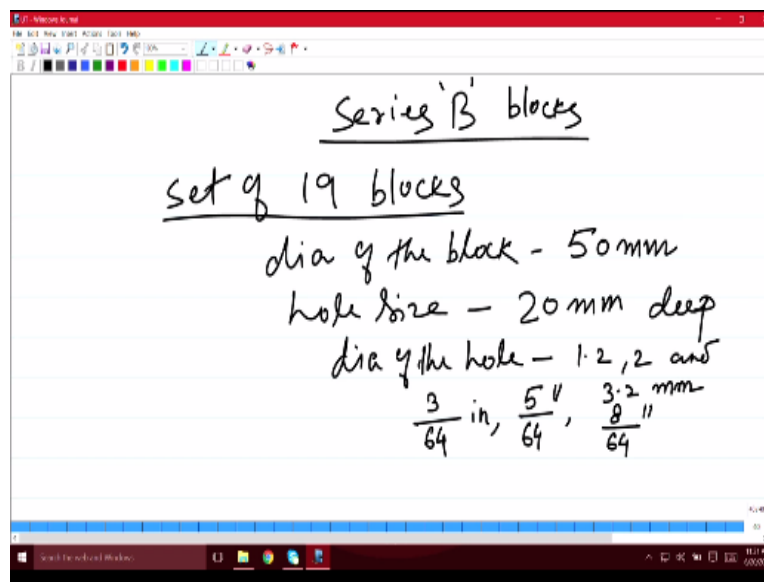 File Edit View Insert Actions Tools Help
Series 'B' blocks
set of 19 blocks
dia of the block - 50mm
hole size - 20mm deep
dia of the hole - 1.2, 2 and
3.2 mm
3/64 in, 5/64", 8/64"
Search the web and Windows